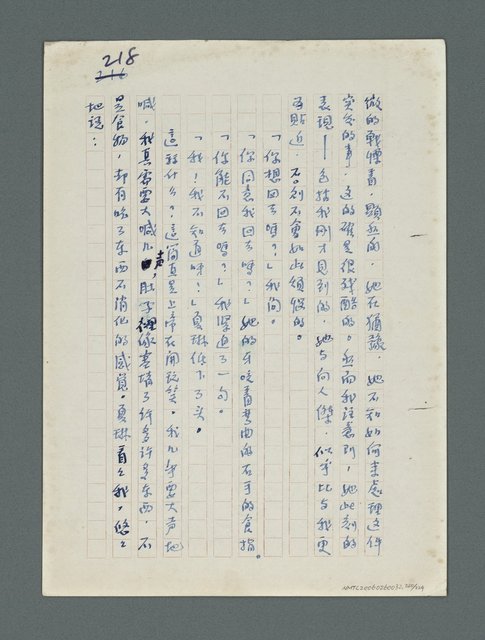 218
216
微的戰慄着,顯然的,她在猶豫,她不知如何來處理這件
突兀的事,這的確是很殘酷的。然而我注意到,她此刻的
表現——包括我剛才見到的,她与向人傑,似乎比与我更
要貼近,否則不會如此煩惱的。
「你想回去嗎?」我問。
「你同意我回去嗎?」她的牙咬着彎曲的右手的食指。
「你能不回去嗎?」我緊迫了一句。
「我!我不知道呀?」夏琳低下了头。
這算什么?這簡直是上帝在開玩笑。我几乎要大声地
喊,我真需要大喊几声,肚子裡像塞擠了許多許多东西,不
是食物,却有吃了东西不消化的感覺。夏琳看之我,悠之
地說:
NMTL20060260032